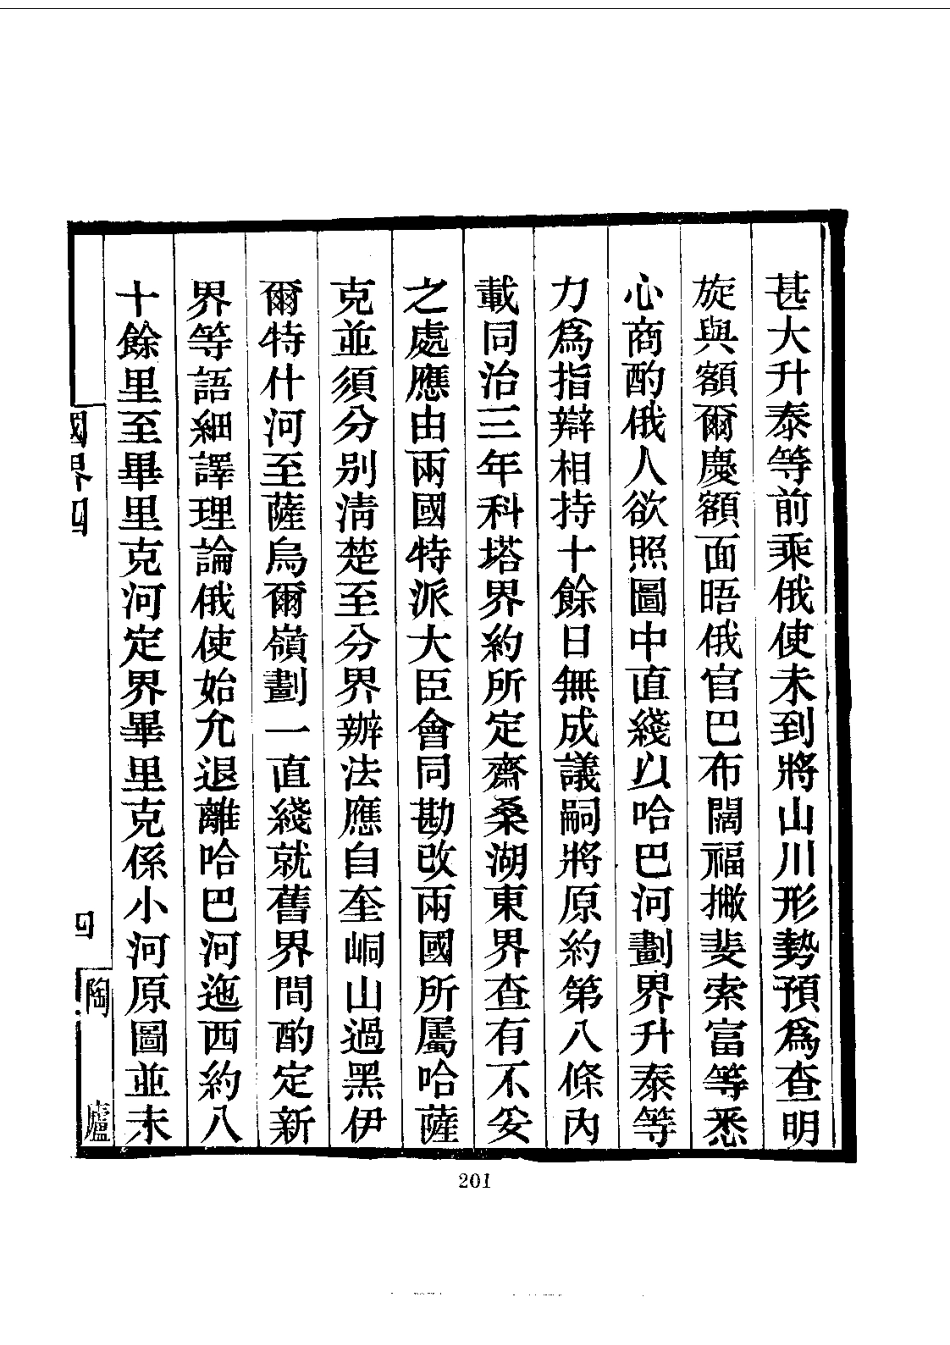 甚大升泰等前乘俄使未到將山川形勢預爲查明
旋與額爾慶額面晤俄官巴布闊福撇斐索富等悉
心商酌俄人欲照圖中直綫以哈巴河劃界升泰等
力爲指辯相持十餘日無成議嗣將原約第八條內
載同治三年科塔界約所定齋桑湖東界查有不妥
之處應由兩國特派大臣會同勘改兩國所屬哈薩
克並須分别淸楚至分界辦法應自奎峒山過黑伊
爾特什河至薩烏爾嶺劃一直綫就舊界間酌定新
界等語細譯理論俄使始允退離哈巴河迤西約八
十餘里至畢里克河定界畢里克係小河原圖並未
國界四
四
陶廬
201